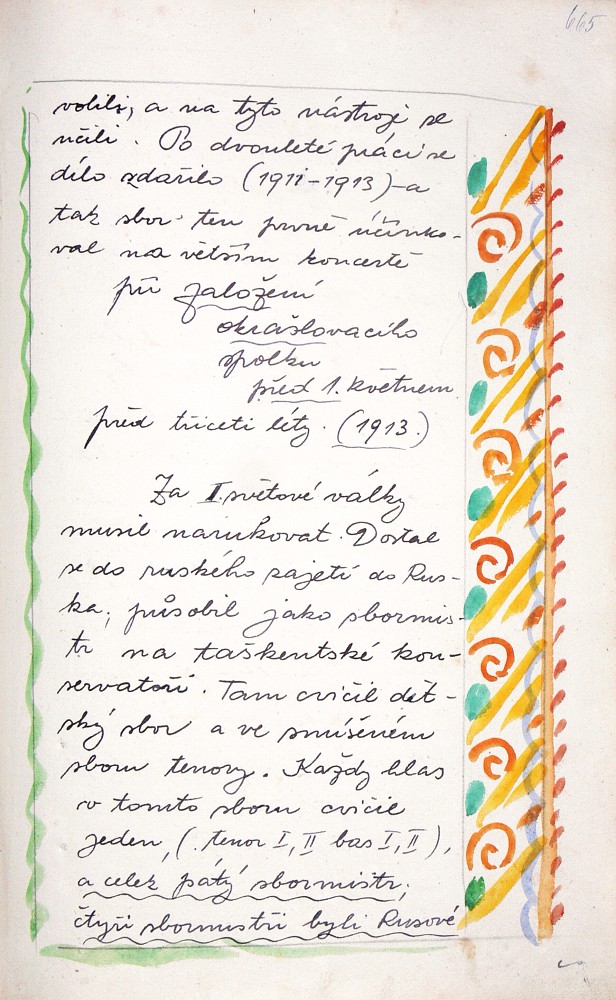 665
volili, a na tyto nástroje se
učili. Po dvouleté práci se
dílo zdařilo (1911-1913)-a
tak sbor ten prvně účinko-
val na větším koncertě
při založení
okrášlovacího
spolku
před 1. květnem
před třiceti léty. (1913.)
Za I. světové války
musil narukovat. Dostal
se do ruského zajetí do Rus-
ka, působil jako sbormis-
tr na taškentské kon-
servatoři. Tam cvičil dět-
ský sbor a ve smíšeném
sboru tenory. Každý hlas
v tomto sboru cvičil
jeden, (tenor I, II bas I, II),
a celek pátý sbormistr;
čtyři sbormistři byli Rusové